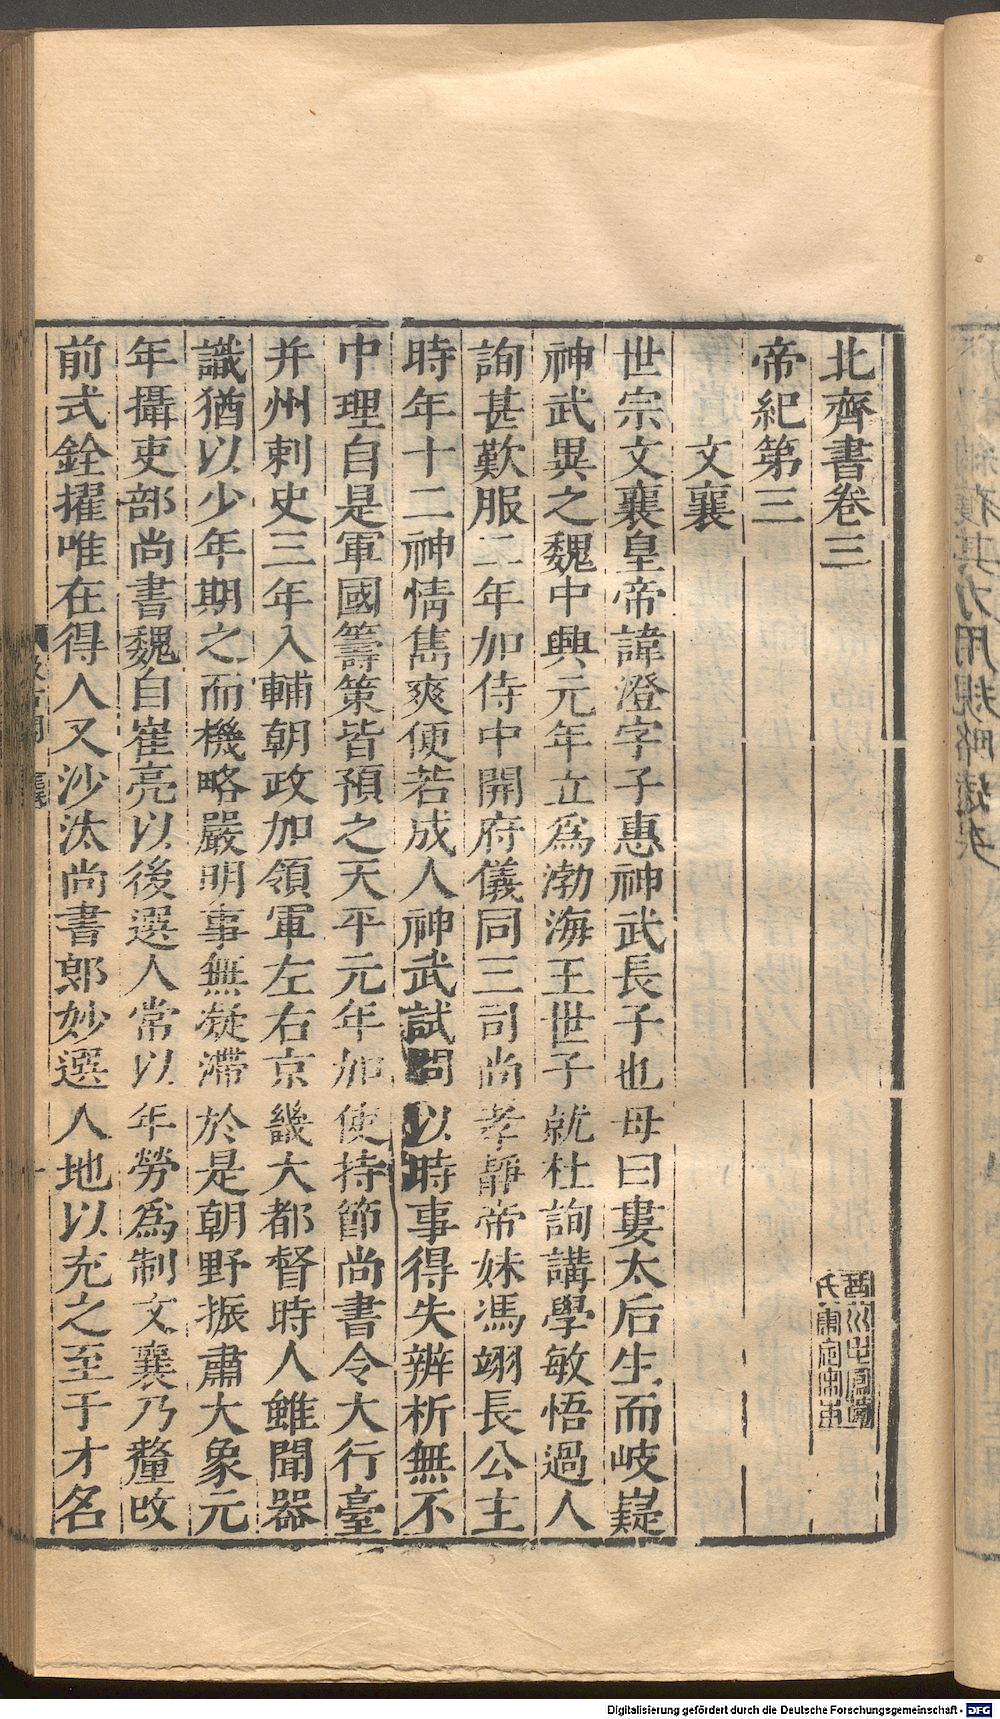 北齊書卷三
帝紀第三
文襄
世宗文襄皇帝諱澄字子惠神武長子也母曰婁太后生而岐嶷
神武異之魏中興元年立爲渤海王世子就杜詢講學敏悟過人
詢甚歎服二年加侍中開府儀同三司尚孝靜帝妹馮翊長公主
時年十二神情雋爽便若成人神武試問以時事得失辨析無不
中理自是軍國籌策皆預之天平元年加使持節尚書令大行臺
并州刺史三年入輔朝政加領軍左右京畿大都督時人雖聞器
識猶以少年期之而機略嚴明事無凝滯於是朝野振肅大象元
年攝吏部尚書魏自崔亮以後選人常以年勞爲制文襄乃釐改
前式銓擢唯在得人又沙汰尚書郞妙選人地以充之至于才名
Digitalisierung gefördert durch die Deutsche Forschungsgemeinschaft - DFG